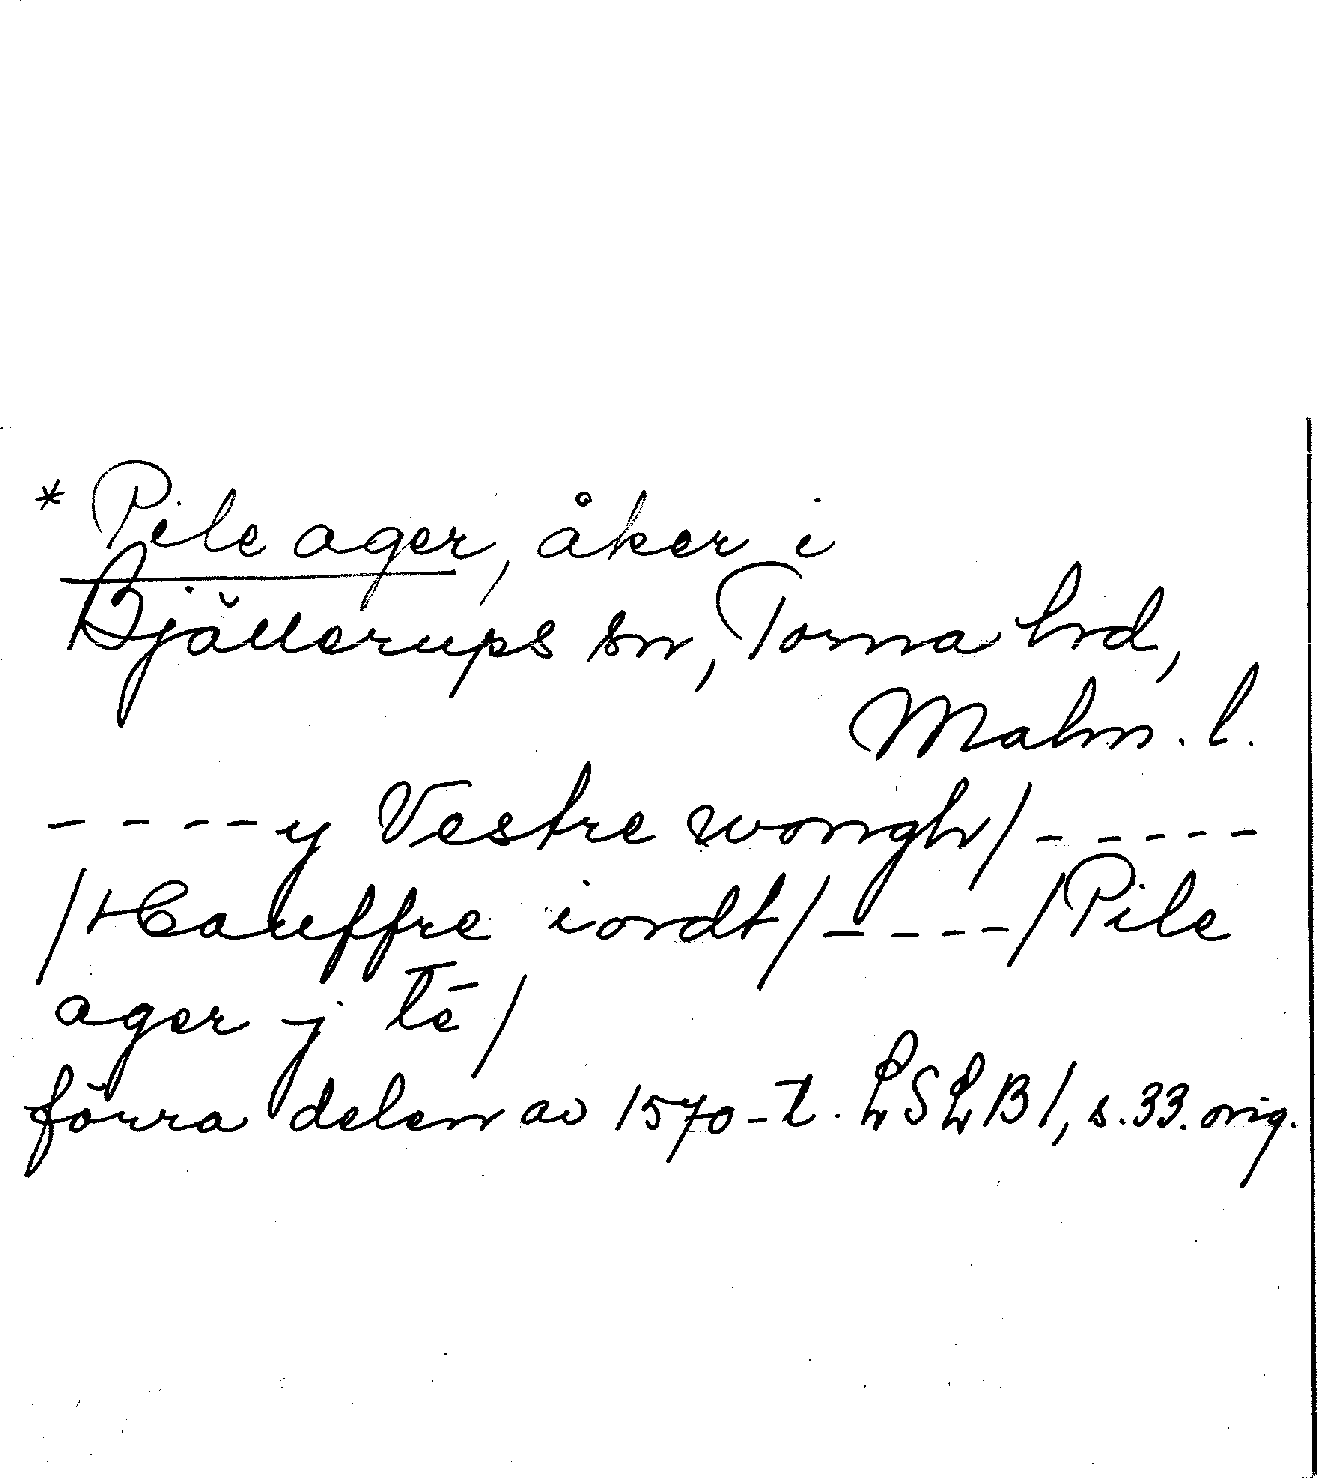 * Pile ager, åker i
Bjällerups sn, Torna hrd,
Malm. l.
----y Vestre wongh/-----
/Hauffre iordt/----/Pile
ager j tē/
förra delen av 1570-t. LSLB1, s. 33. orig.